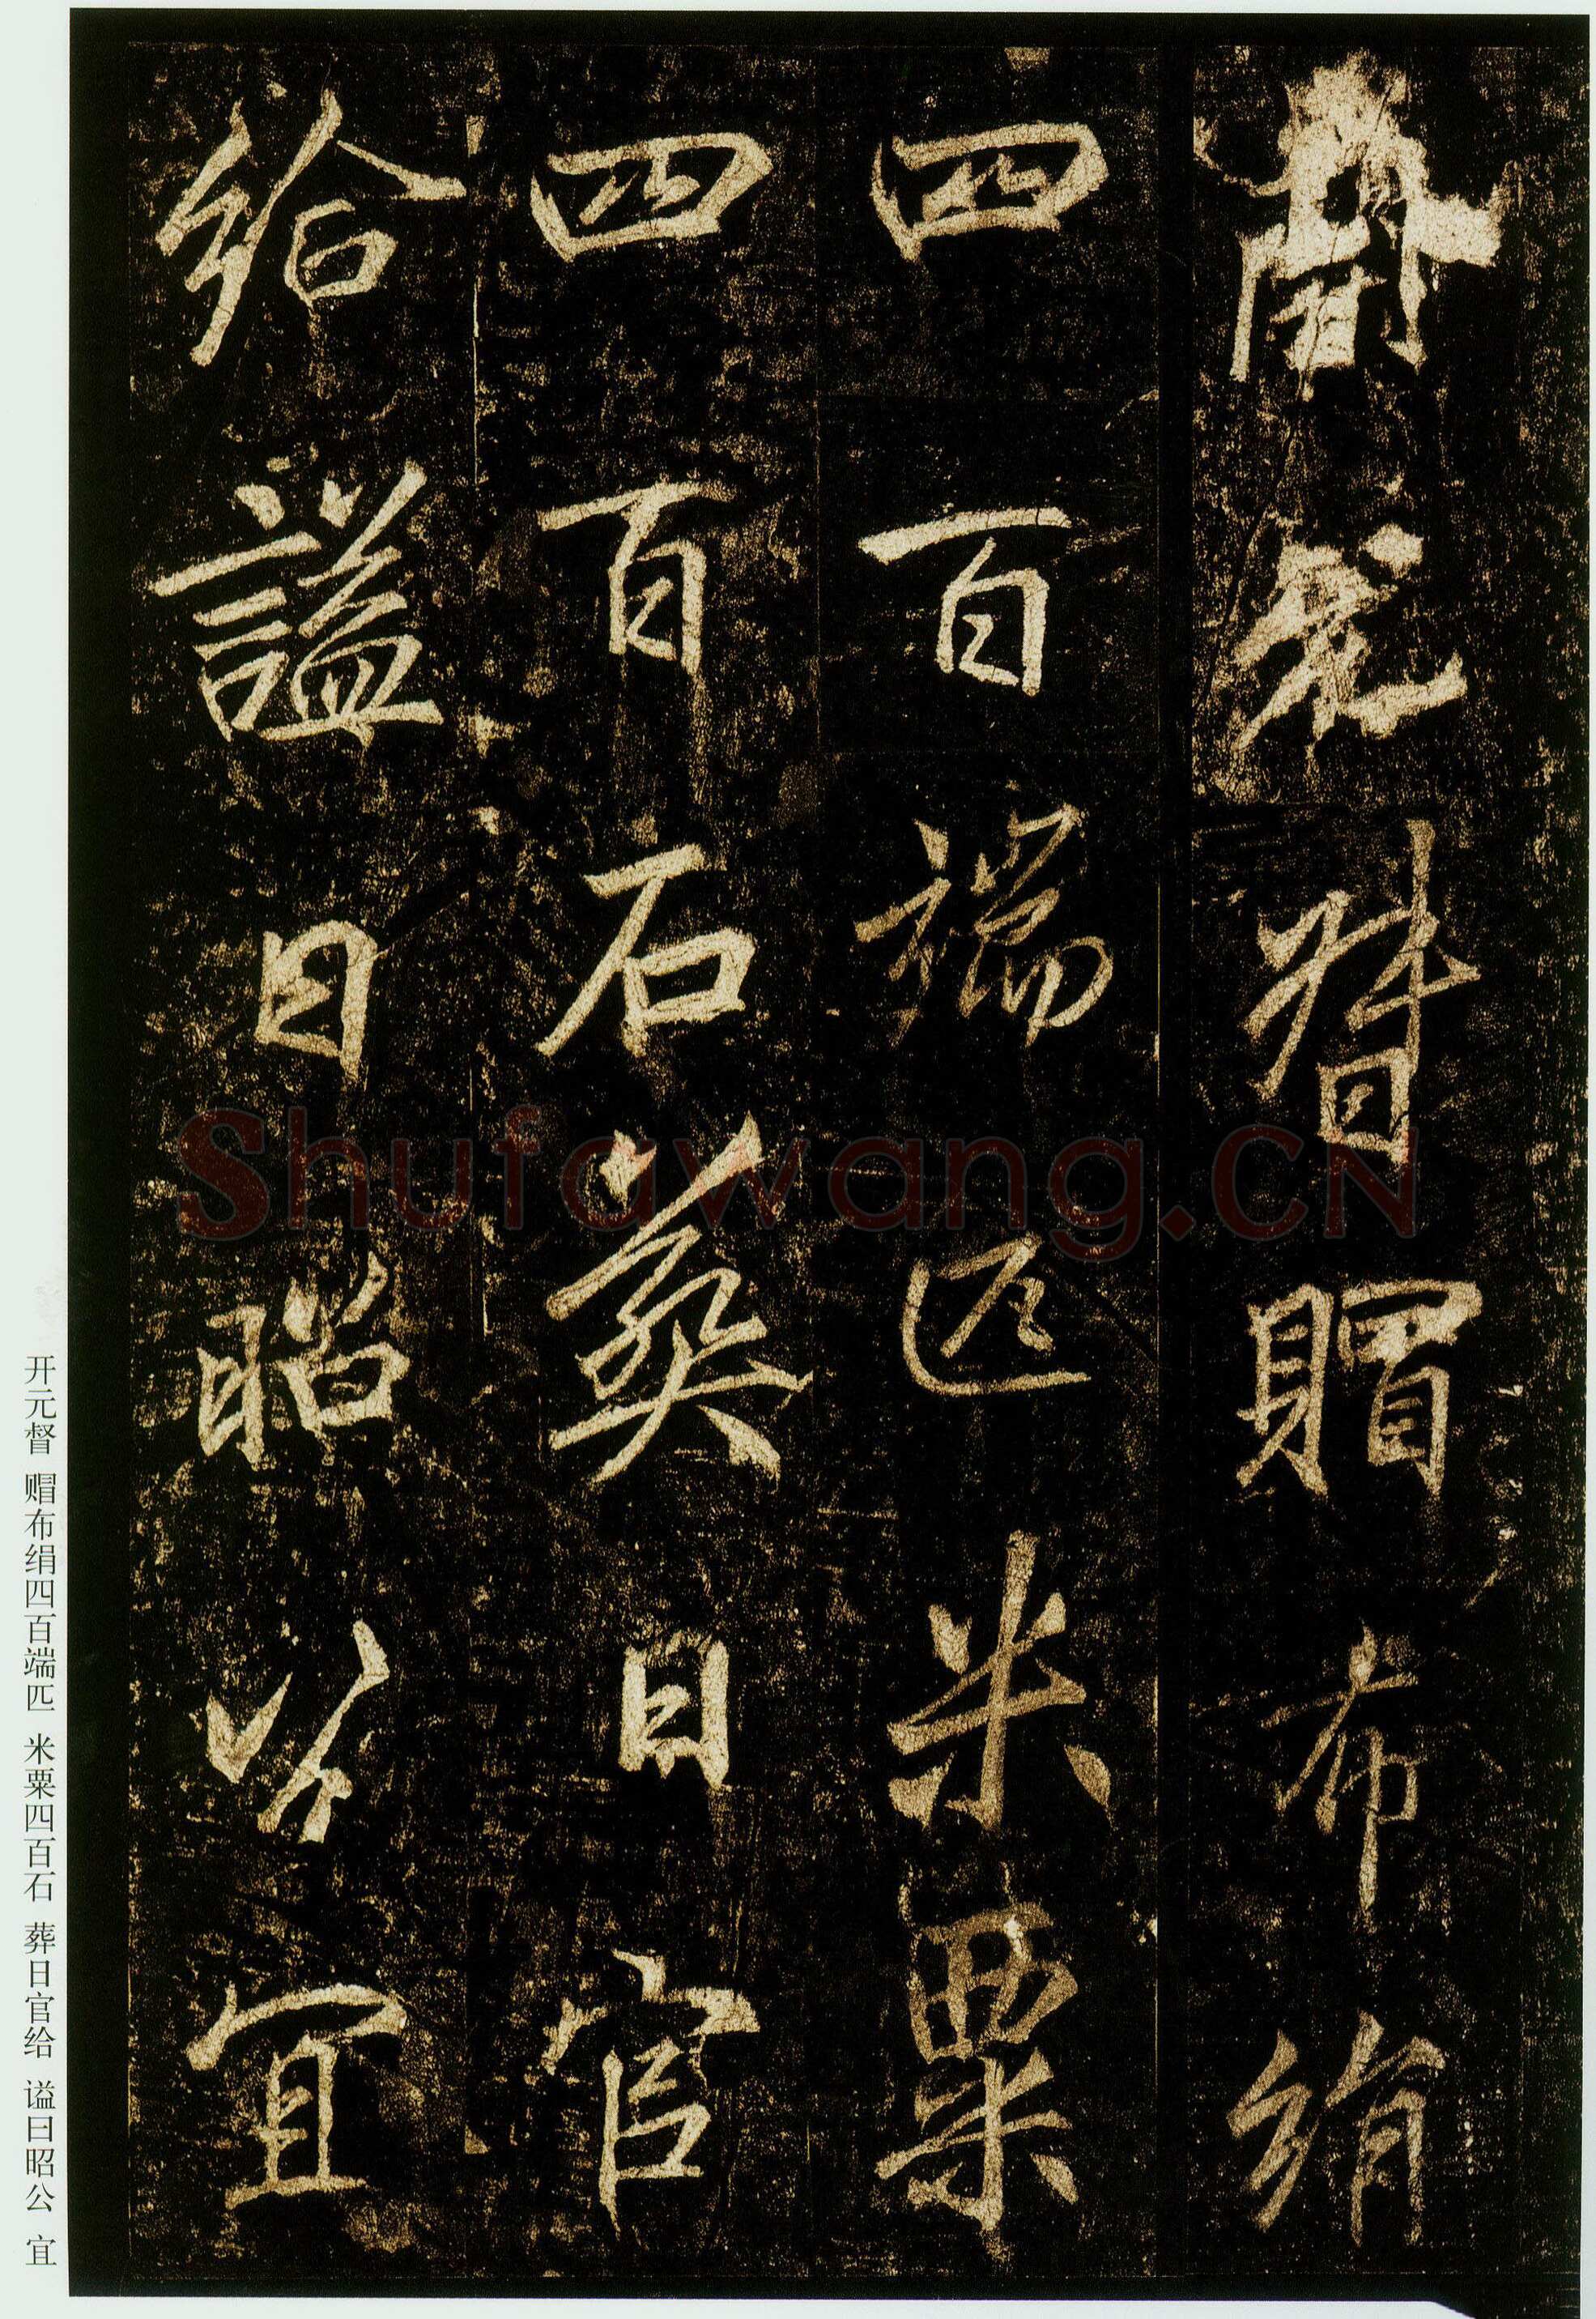 開元督賵布絹
四百端匹米粟
四百石葬日官
給謚曰昭公宜
开元督 赗布绢四百端匹 米粟四百石 葬日官给 谥曰昭公 宜
Shufawang.CN